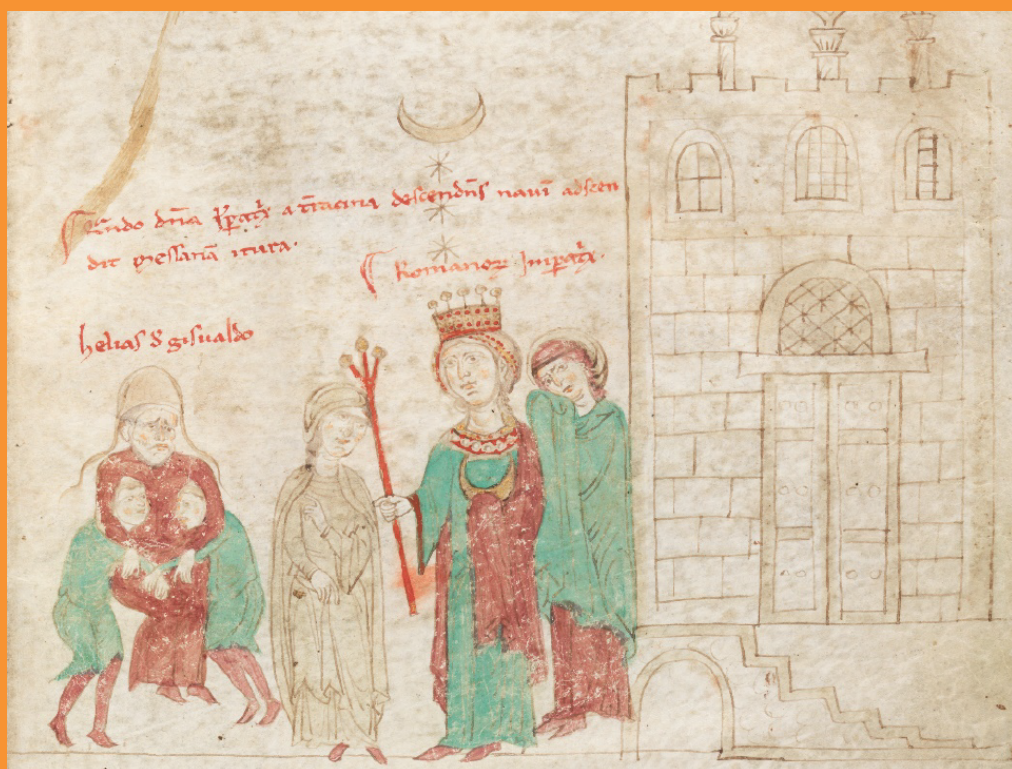 Qn̄do dn̄a Īpatx̄ a t̄racina descendn̄s navī adscen
dit messanā itura.
Romanoꝝ Impatx̄.
helias đ gisualdo